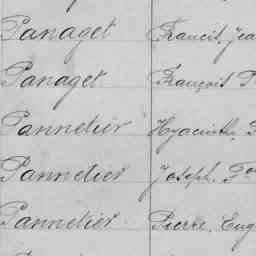 Panaget Francis. Jea
Panaget François
Pannetier Hyacinthe
Pannetier Joseph.
Pannetier Pierre. Eug